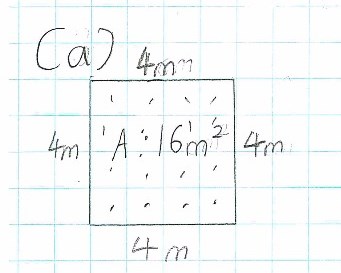 (a)
4m
4m A:16m² 4m
4m